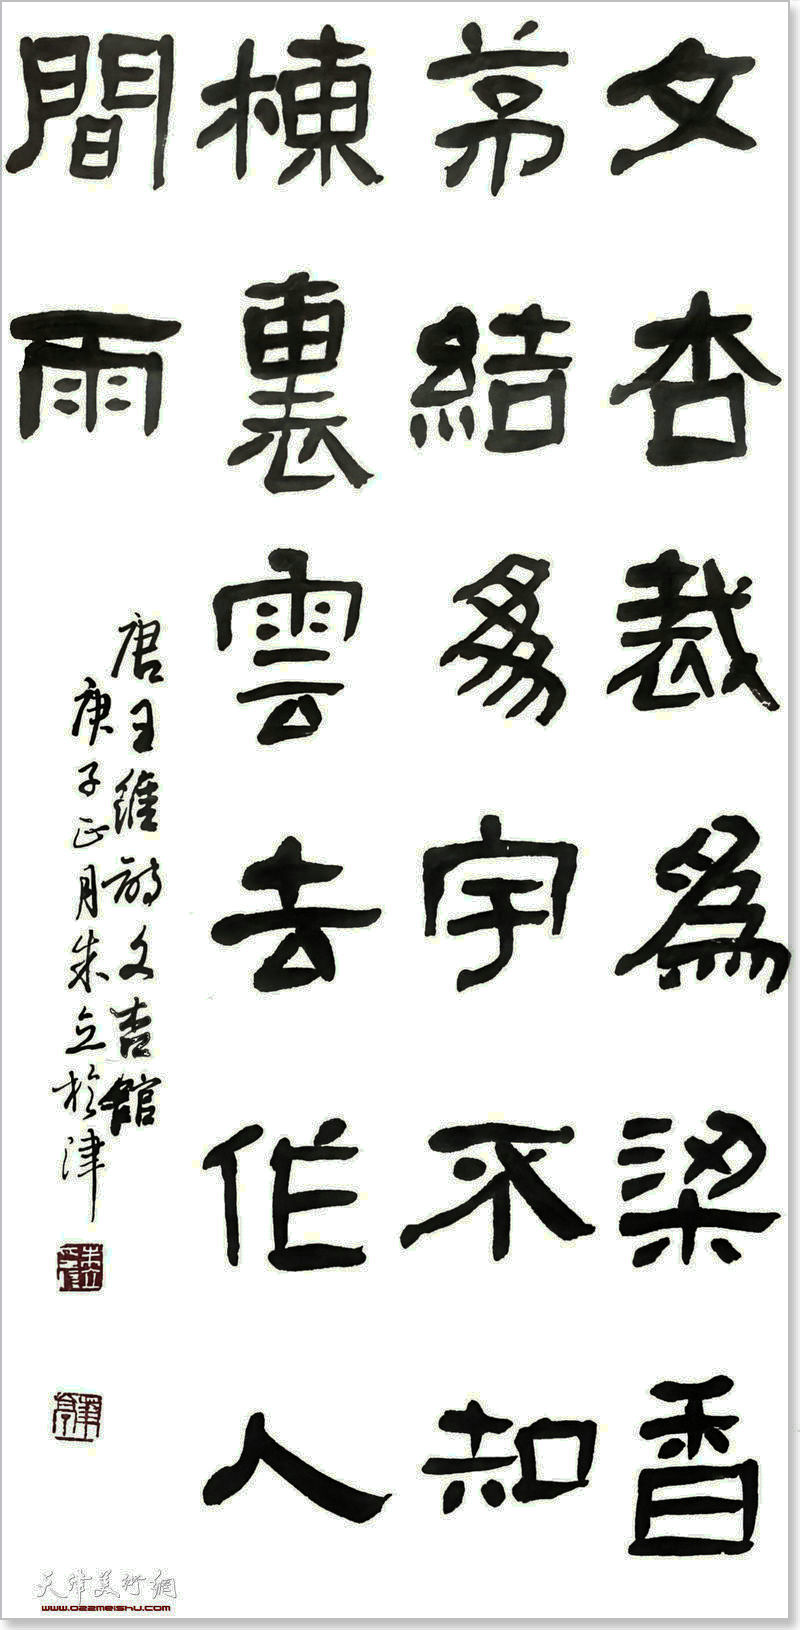 文杏裁爲梁香
茅結爲宇不知
棟裏雲去作人
間雨
唐王維詩文杏館
庚子正月朱立於津
天津美术網
www.022meishu.com